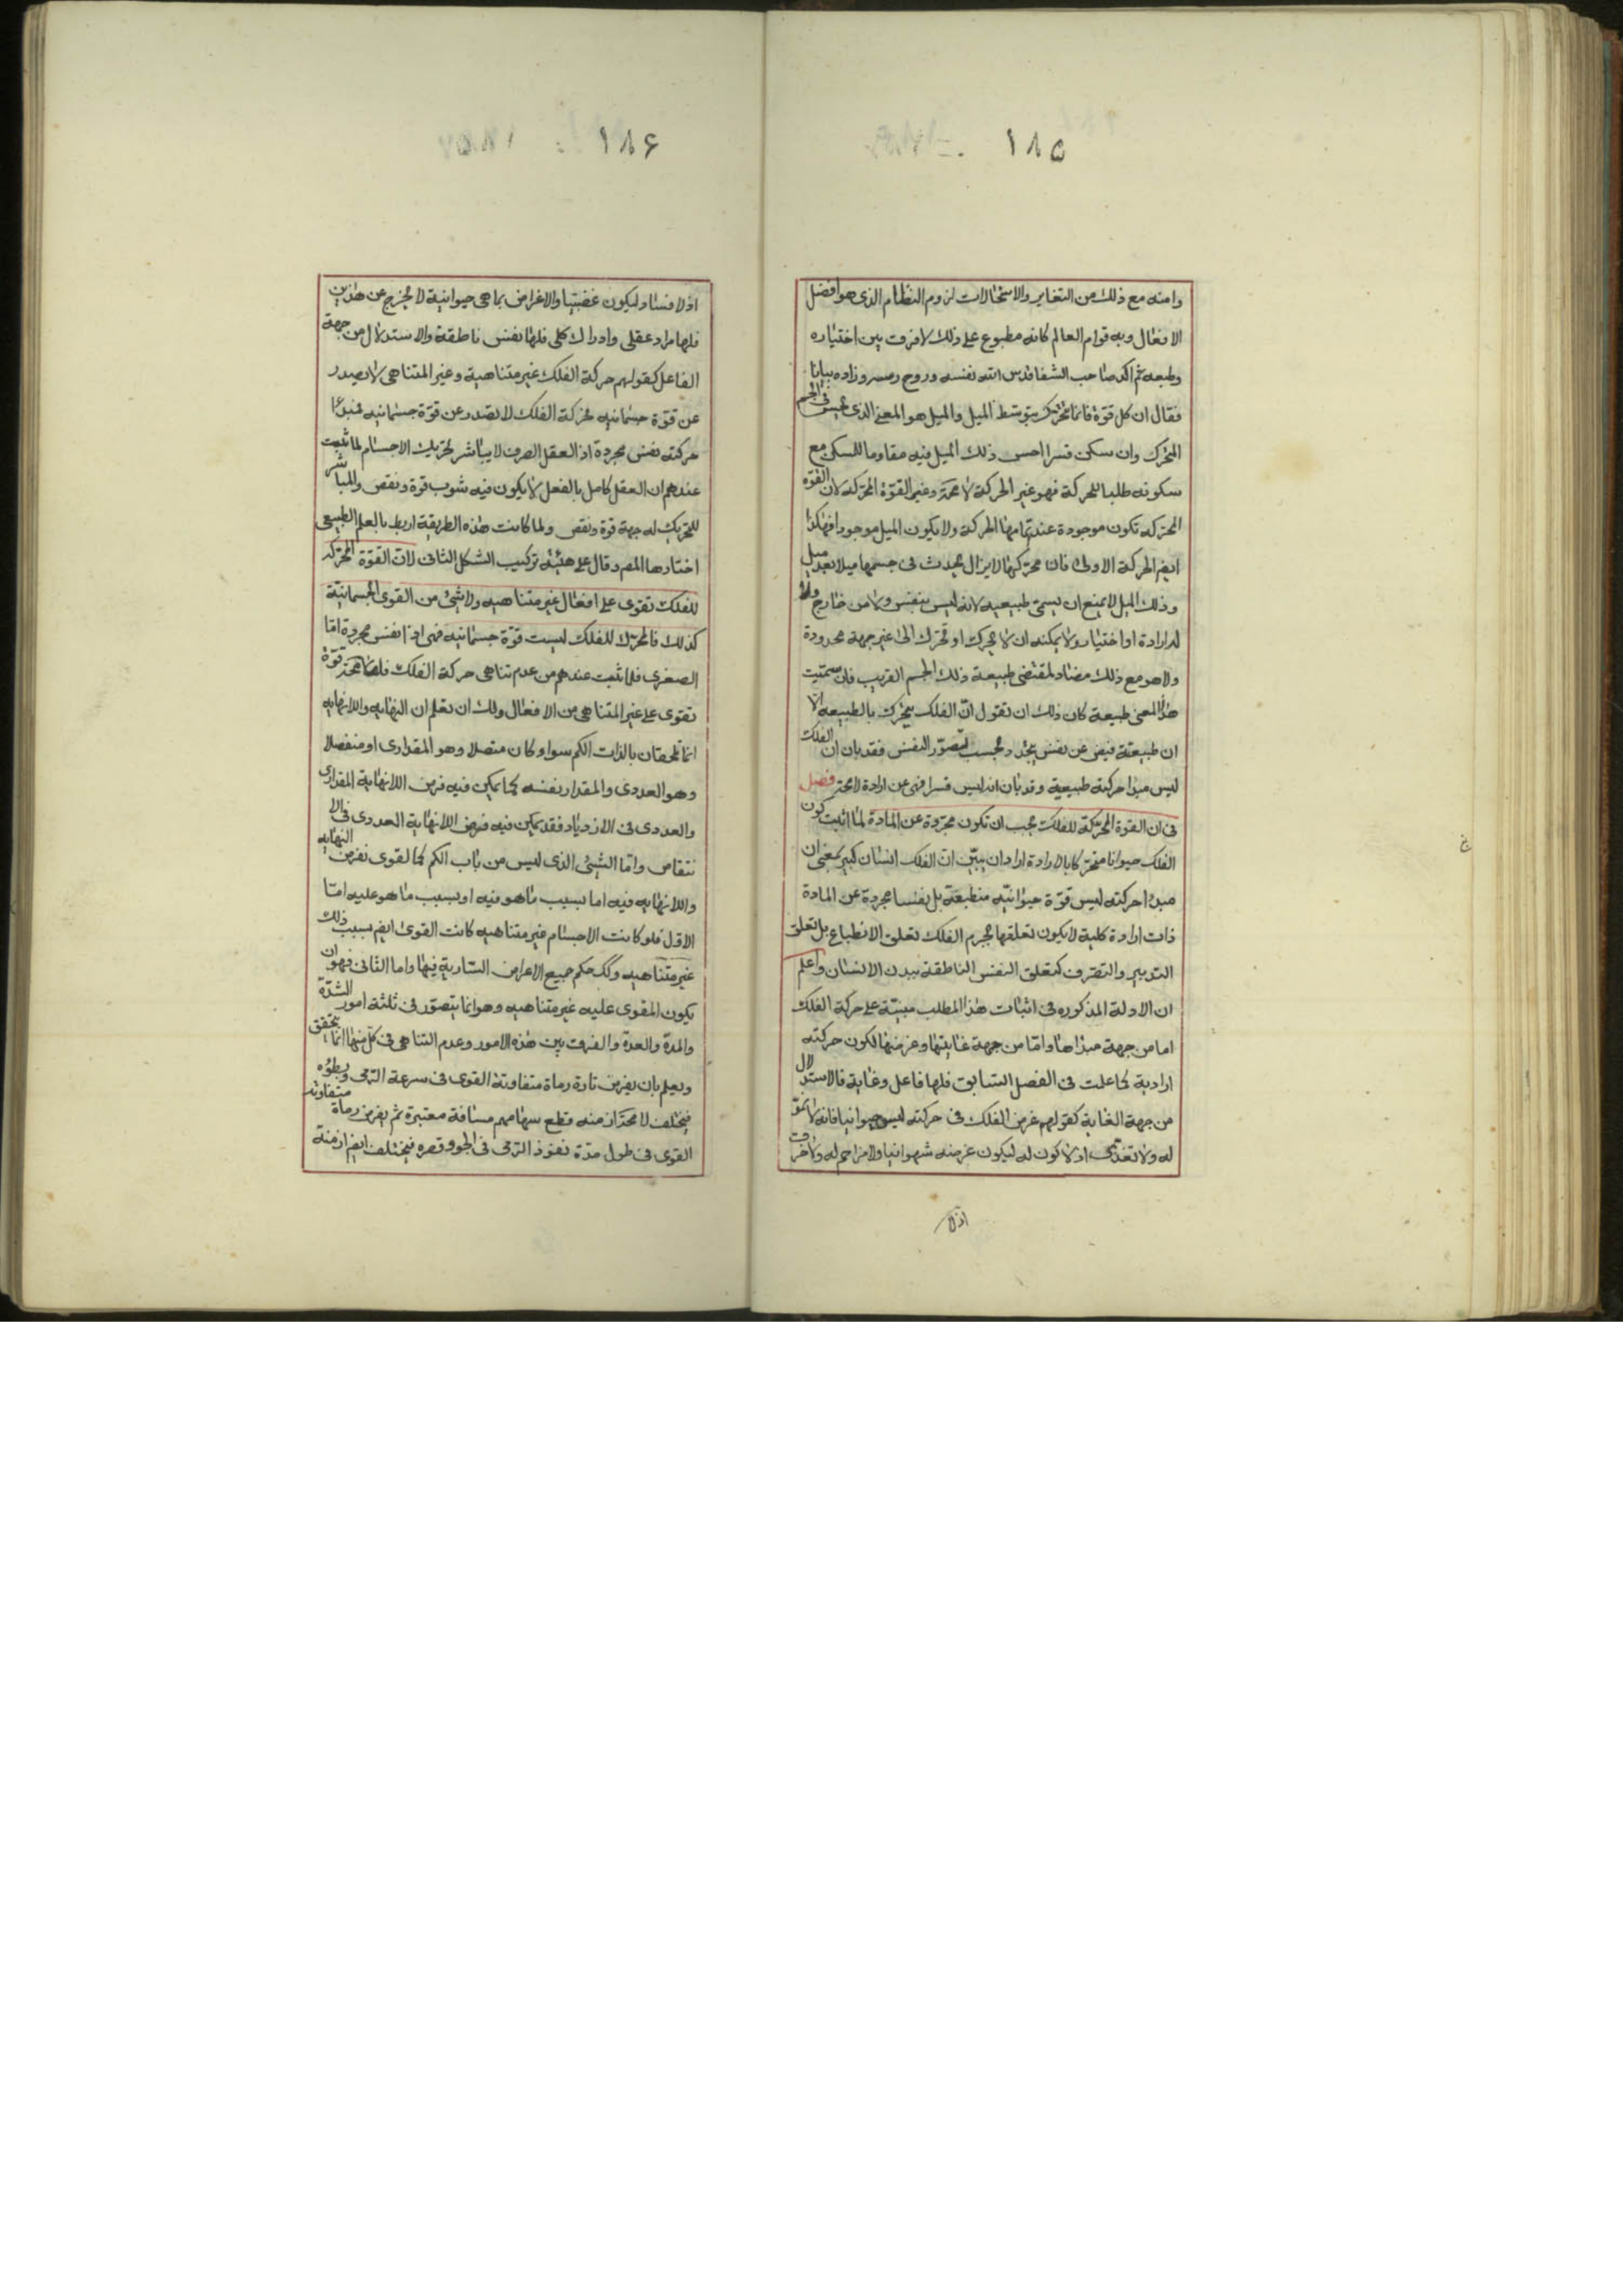 ۱۸۵
وامنه مع ذلك من التغاير والاستحالات لزوم النظام الذى هو افضل
الافعال وبه قوام العالم كانه مطبوع على ذلك لا فرق بين اختياره
وطبعه ثم اكد صاحب الشفا قدس الله نفسه وروح رمسه وزاده بيانا
فقال ان كل قوة فانما تحرك بتوسط الميل والميل هو المعنى الذى يحس فى الجسم
المتحرك وان سكن قسرا احس ذلك الميل فيه مقاوما للسكن مع
سكونه طلبا للحركة فهو غير الحركة لا محة وغير القوة المحركه لان القوة
المحركه تكون موجودة عند تمامها الحركة ولا يكون الميل موجودا فهكذا
ايضم الحركة الاولى فان محركها لا يزال يحدث فى جسمها ميلا بعد ميل
وذلك الميل لا يمتنع ان يسمى طبيعيه لانه ليس بنفس ولا من خارج ولا
له ارادة او اختيار ولا يمكنه ان لا يحرك او تحرك الى غير جهة محدودة
ولا هو مع ذلك مضاد لمقتضى طبيعة ذلك الجسم القريب فان سميت
هذا المعنى طبيعة كان ذلك ان تقول ان الفلك يتحرك بالطبيعه الا
ان طبيعته فيض عن نفس يتجدد بحسب تصور النفس فقد بان ان الفلك
ليس مبدا حركته طبيعية وقد بان انه ليس قسرا فهى عن ارادة لا محة فصل
فى ان القوة المحركة للفلك يجب ان تكون مجردة عن المادة لما اثبت كون
الفلك حيوانا متحركا بالارادة اراد ان يبين ان الفلك انسان كبير بمعنى ان
مبدا حركته ليس قوة حيوانيه منطبعة بل نفسا مجردة عن المادة
ذات ارادة كلية لا يكون تعلقها بجرم الفلك تعلق الانطباع بل تعلق
التدبير والتصرف كتعلق النفس الناطقة ببدن الانسان واعلم
ان الادلة المذكوره فى اثبات هذا المطلب مبنية على حركة الفلك
اما من جهة مبداها واما من جهة غايتها وغرضها لكون حركته
ارادية كما علمت فى الفصل السابق فلها فاعل وغاية فالاستدلال
من جهة الغاية كقولهم غرض الفلك فى حركته ليس حيوانيا فانه لا نمو
له ولا تغذى اذ لا كون له ليكون غرضه شهوانيا ولا مزاحم له ولا خرق
اذلا
۱۸۶
اذ لا فساد ليكون غضبيا والاغراض بما هى حيوانية لا يخرج عن هذين
فلها مراد عقلى وادراك كلى فلها نفس ناطقة والاستدلال من جهة
الفاعل كقولهم حركة الفلك غير متناهية وغير المتناهى لا يصدر
عن قوة جسمانيه فحركة الفلك لا تصدر عن قوة جسمانيه فمبدا
حركته نفس مجردة اذ العقل الصرف لا يباشر تحريك الاجسام لما ثبت
عندهم ان العقل كامل بالفعل لا يكون فيه شوب قوة ونقص والمباشر
للتحريك له جهة قوة ونقص ولما كانت هذه الطريقة اربط بالعلم الطبيعى
اختارها المصم وقال على هيئة تركيب الشكل الثانى لان القوة المحركه
للفلك تقوى على افعال غير متناهيه ولا شئ من القوى الجسمانية
كذلك فالمحرك للفلك ليست قوة جسمانيه فهى اذا نفس مجردة اما
الصغرى فلما ثبت عندهم من عدم تناهى حركة الفلك فلها محة قوة
تقوى على غير المتناهى من الافعال ولك ان تعلم ان النهايه واللانهايه
انما تلحقان بالذات الكم سواء كان متصلا وهو المقدارى او منفصلا
وهو العددى والمقدار نفسه كما يمكن فيه فرض اللانهاية المقدارى
والعددى فى الازدياد فقد يمكن فيه فرض اللانهاية العددى فى الا
نتقاص واما الشئ الذى ليس من باب الكم كالقوى نفرض النهايه
واللانهايه فيه اما بسبب ما هو فيه او بسبب ما هو عليه اما
الاول فلو كانت الاجسام غير متناهيه كانت القوى ايضم بسبب ذلك
غير متناهيه وكك حكم جميع الاعراض السارية فيها واما الثانى فهو ان
يكون المقوى عليه غير متناهيه وهو انما يتصور فى ثلثة امور الشدة
والمدة والعدة والفرق بين هذه الامور وعدم التناهى فى كل منها انما يتحقق
ويعلم بان يفرض تارة رماة متفاوتة القوى فى سرعة الرمى وبطؤه
فيختلف لا محة ازمنه قطع سهامهم مسافة معتبرة ثم يفرض رماة متفاوتة
القوى فى طول مدة نفوذ الرمى فى الجو وقصره فيختلف ايضم ازمنة